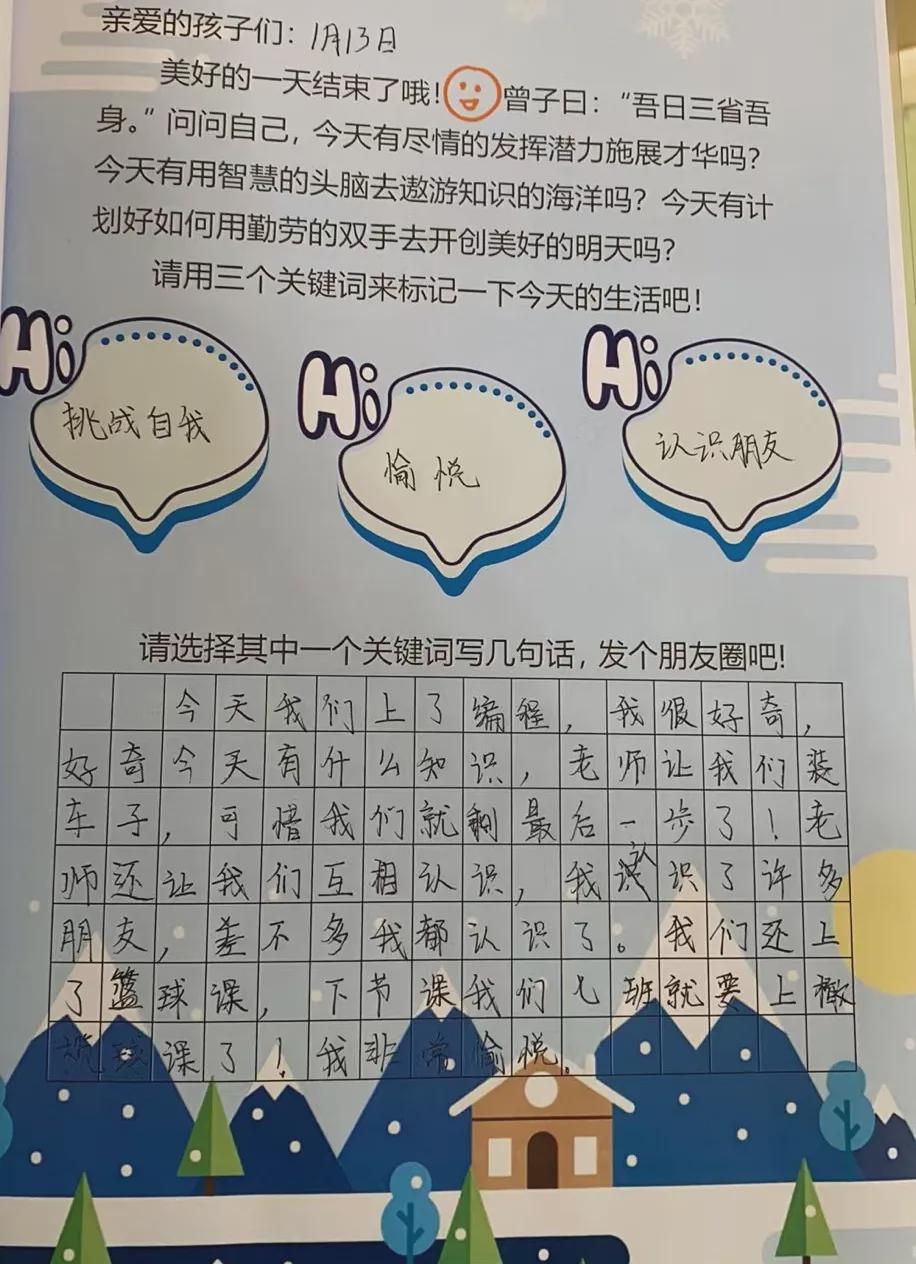 亲爱的孩子们：1月13日
美好的一天结束了哦！曾子曰：“吾日三省吾
身。”问问自己，今天有尽情的发挥潜力施展才华吗？
今天有用智慧的头脑去遨游知识的海洋吗？今天有计
划好如何用勤劳的双手去开创美好的明天吗？
请用三个关键词来标记一下今天的生活吧！
Hi
挑战自我
Hi
愉悦
Hi
认识朋友
请选择其中一个关键词写几句话，发个朋友圈吧！
今天我们上了编程，我很好奇，
好奇今天有什么知识，老师让我们装
车子，可惜我们就剩最后一步了！老
师还让我们互相认识，我认识了许多
朋友，差不多我都认识了。我们还上
了篮球课，下节课我们七班就要上橄
榄球课了！我非常愉悦。